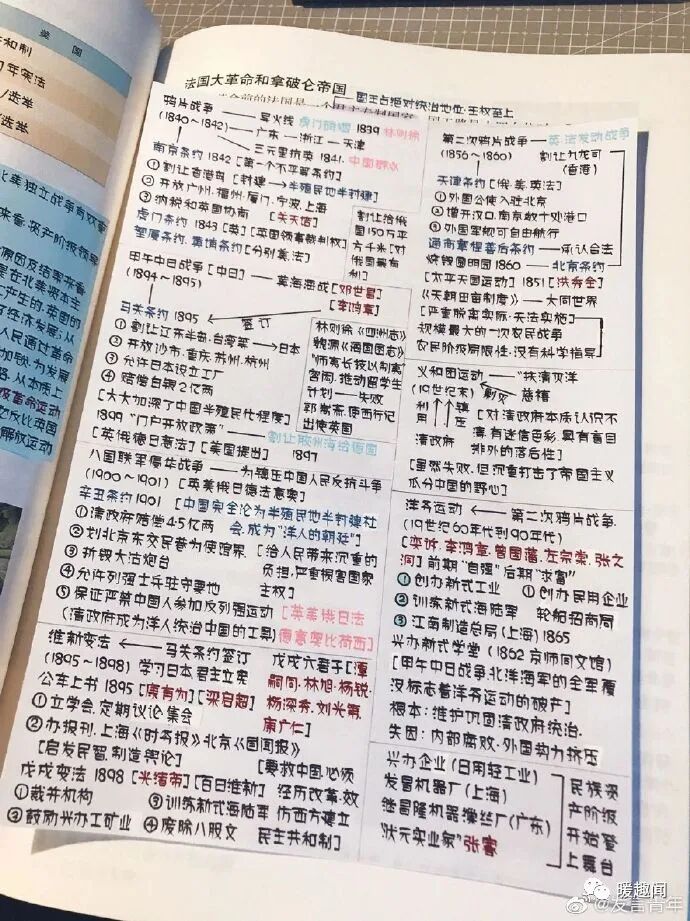 美国
和制
7年宪法
/选举
/选举
北美独立战争有双重
法国大革命和拿破仑帝国
国王占绝对统治地位·王权至上
鸦片战争 导火线 虎门销烟 1839 林则徐
(1840~1842) 广东—浙江—天津
三元里抗英 1841
南京条约 1842 [第一个不平等条约]
①割让香港岛 [封建→半殖民地半封建]
②开放广州·福州·厦门·宁波·上海
③纳税和英国协商 [关天培]
虎门条约 1843 [英] [英国领事裁判权]
望厦条约·黄埔条约 [分别美·法]
割让给俄
国150万平
方千米[对
俄国最有
利]
甲午中日战争 [中日] 黄海海战 [邓世昌]
(1894~1895) [李鸿章]
签订
马关条约 1895
①割让辽东半岛·台湾等→日本
②开放沙市·重庆·苏州·杭州
③允许日本设立工厂
④赔偿白银2亿两
[大大加深了中国半殖民化程度]
1899 "门户开放政策" 割让胶州湾给德国
[英·俄·德·日·意·法] [美国提出] 1897
林则徐《四洲志》
魏源《海国图志》
"师夷长技以制夷"
容闳·推动留学生
计划——失败
郭嵩焘·使西行记
出使英国
八国联军侵华战争——为镇压中国人民反抗斗争
(1900~1901) [英美俄日德法意奥]
辛丑条约 1901 [中国完全沦为半殖民地半封建社
会·成为"洋人的朝廷"]
①清政府赔偿4.5亿两
②划北京东交民巷为使馆界
③拆毁大沽炮台
④允许列强士兵驻守要地
⑤保证严禁中国人参加反列强运动
(清政府成为洋人统治中国的工具)
[给人民带来沉重的
负担·严重损害国家
主权]
[英美俄日法
德意奥比荷西]
维新变法 马关条约签订
(1895~1898) 学习日本·君主立宪
公车上书 1895 [康有为] [梁启超]
①立学会·定期议论·集会
②办报刊·上海《时务报》北京《国闻报》
[启发民智·制造舆论]
戊戌变法 1898 [光绪帝] [百日维新]
①裁并机构 ③训练新式海陆军
②鼓励兴办工矿业 ④废除八股文
戊戌六君子[谭
嗣同·林旭·杨锐·
杨深秀·刘光第·
康广仁]
[要救中国·必须
经历改革·效
仿西方建立
民主共和制]
第二次鸦片战争——英·法发动战争
(1856~1860) 割让九龙司
(香港)
天津条约 [俄·美·英·法]
①外国公使入驻北京
②增开汉口·南京数十处港口
③外国军舰可自由航行
通商章程善后条约——承认合法
烧毁圆明园 1860 北京条约
[太平天国运动] 1851 [洪秀全]
《天朝田亩制度》→大同世界
[严重脱离实际·无法实施]
规模最大的一次农民战争
农民阶级局限性·没有科学指导
义和团运动 "扶清灭洋"
(19世纪末) 剿灭 慈禧
利用 镇压
清政府
[对清政府本质认识不
清·有迷信色彩·具有盲目
排外的落后性]
[虽然失败·但沉重打击了帝国主义
瓜分中国的野心]
洋务运动 第二次鸦片战争
(19世纪60年代到90年代)
[奕䜣·李鸿章·曾国藩·左宗棠·张之
洞] 前期"自强" 后期"求富"
①创办新式工业 ①创办民用企业
②训练新式海陆军 轮船招商局
③江南制造总局(上海) 1865
兴办新式学堂 (1862 京师同文馆)
[甲午中日战争·北洋海军的全军覆
没标志着洋务运动的破产]
根本:维护巩固清政府统治
失因:内部腐败·外国势力挤压
兴办企业 (日用轻工业)
发昌机器厂(上海)
继昌隆机器缫丝厂(广东)
"状元实业家"张謇
民族资
产阶级
开始登
上舞台
暖趣闻
@发言青年